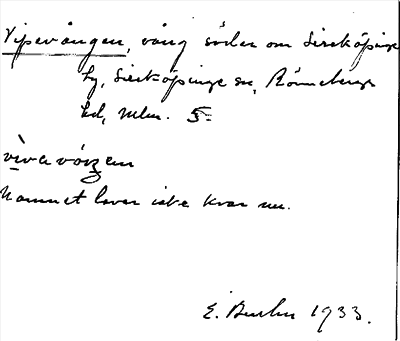 Vipevången, vång söder om Sireköpinge
by, Sireköpinge sn, Rönnebergs
hd, Mlm. 5=
Namnet lever icke kvar nu.
E. 1933.